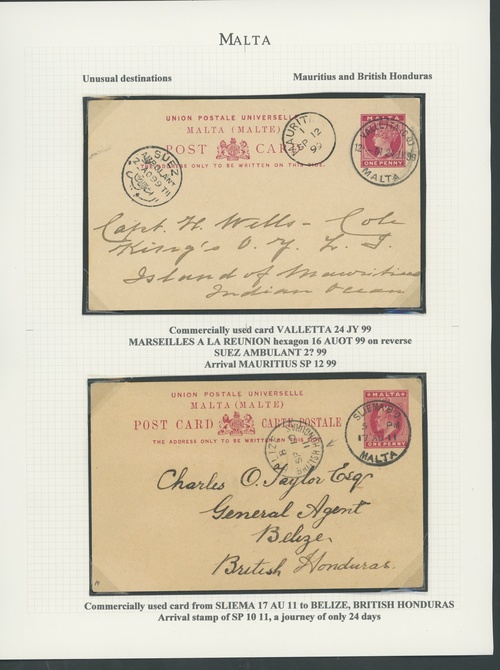 MALTA
Unusual destinations
Mauritius and British Honduras
UNION POSTALE UNIVERSELLE
MALTA (MALTE)
POST CARD
THE ADDRESS ONLY TO BE WRITTEN ON THIS SIDE.
MALTA
ONE PENNY
VALLETTA
MALTA
MAURITIUS
1
SP 12
99
SUEZ
AMBULANT
Capt. H. Wells-Cole
King's O. Y. L. I.
Island of Mauritius
Indian Ocean
Commercially used card VALLETTA 24 JY 99
MARSEILLES A LA REUNION hexagon 16 AUOT 99 on reverse
SUEZ AMBULANT 2? 99
Arrival MAURITIUS SP 12 99
UNION POSTALE UNIVERSELLE
MALTA (MALTE)
POST CARD CARTE POSTALE
THE ADDRESS ONLY TO BE WRITTEN ON THIS SIDE
MALTA
ONE PENNY
SLIEMA
17 AU 11
MALTA
BELIZE
BRITISH HONDURAS
Charles O. Taylor Esq
General Agent
Belize
British Honduras.
Commercially used card from SLIEMA 17 AU 11 to BELIZE, BRITISH HONDURAS
Arrival stamp of SP 10 11, a journey of only 24 days